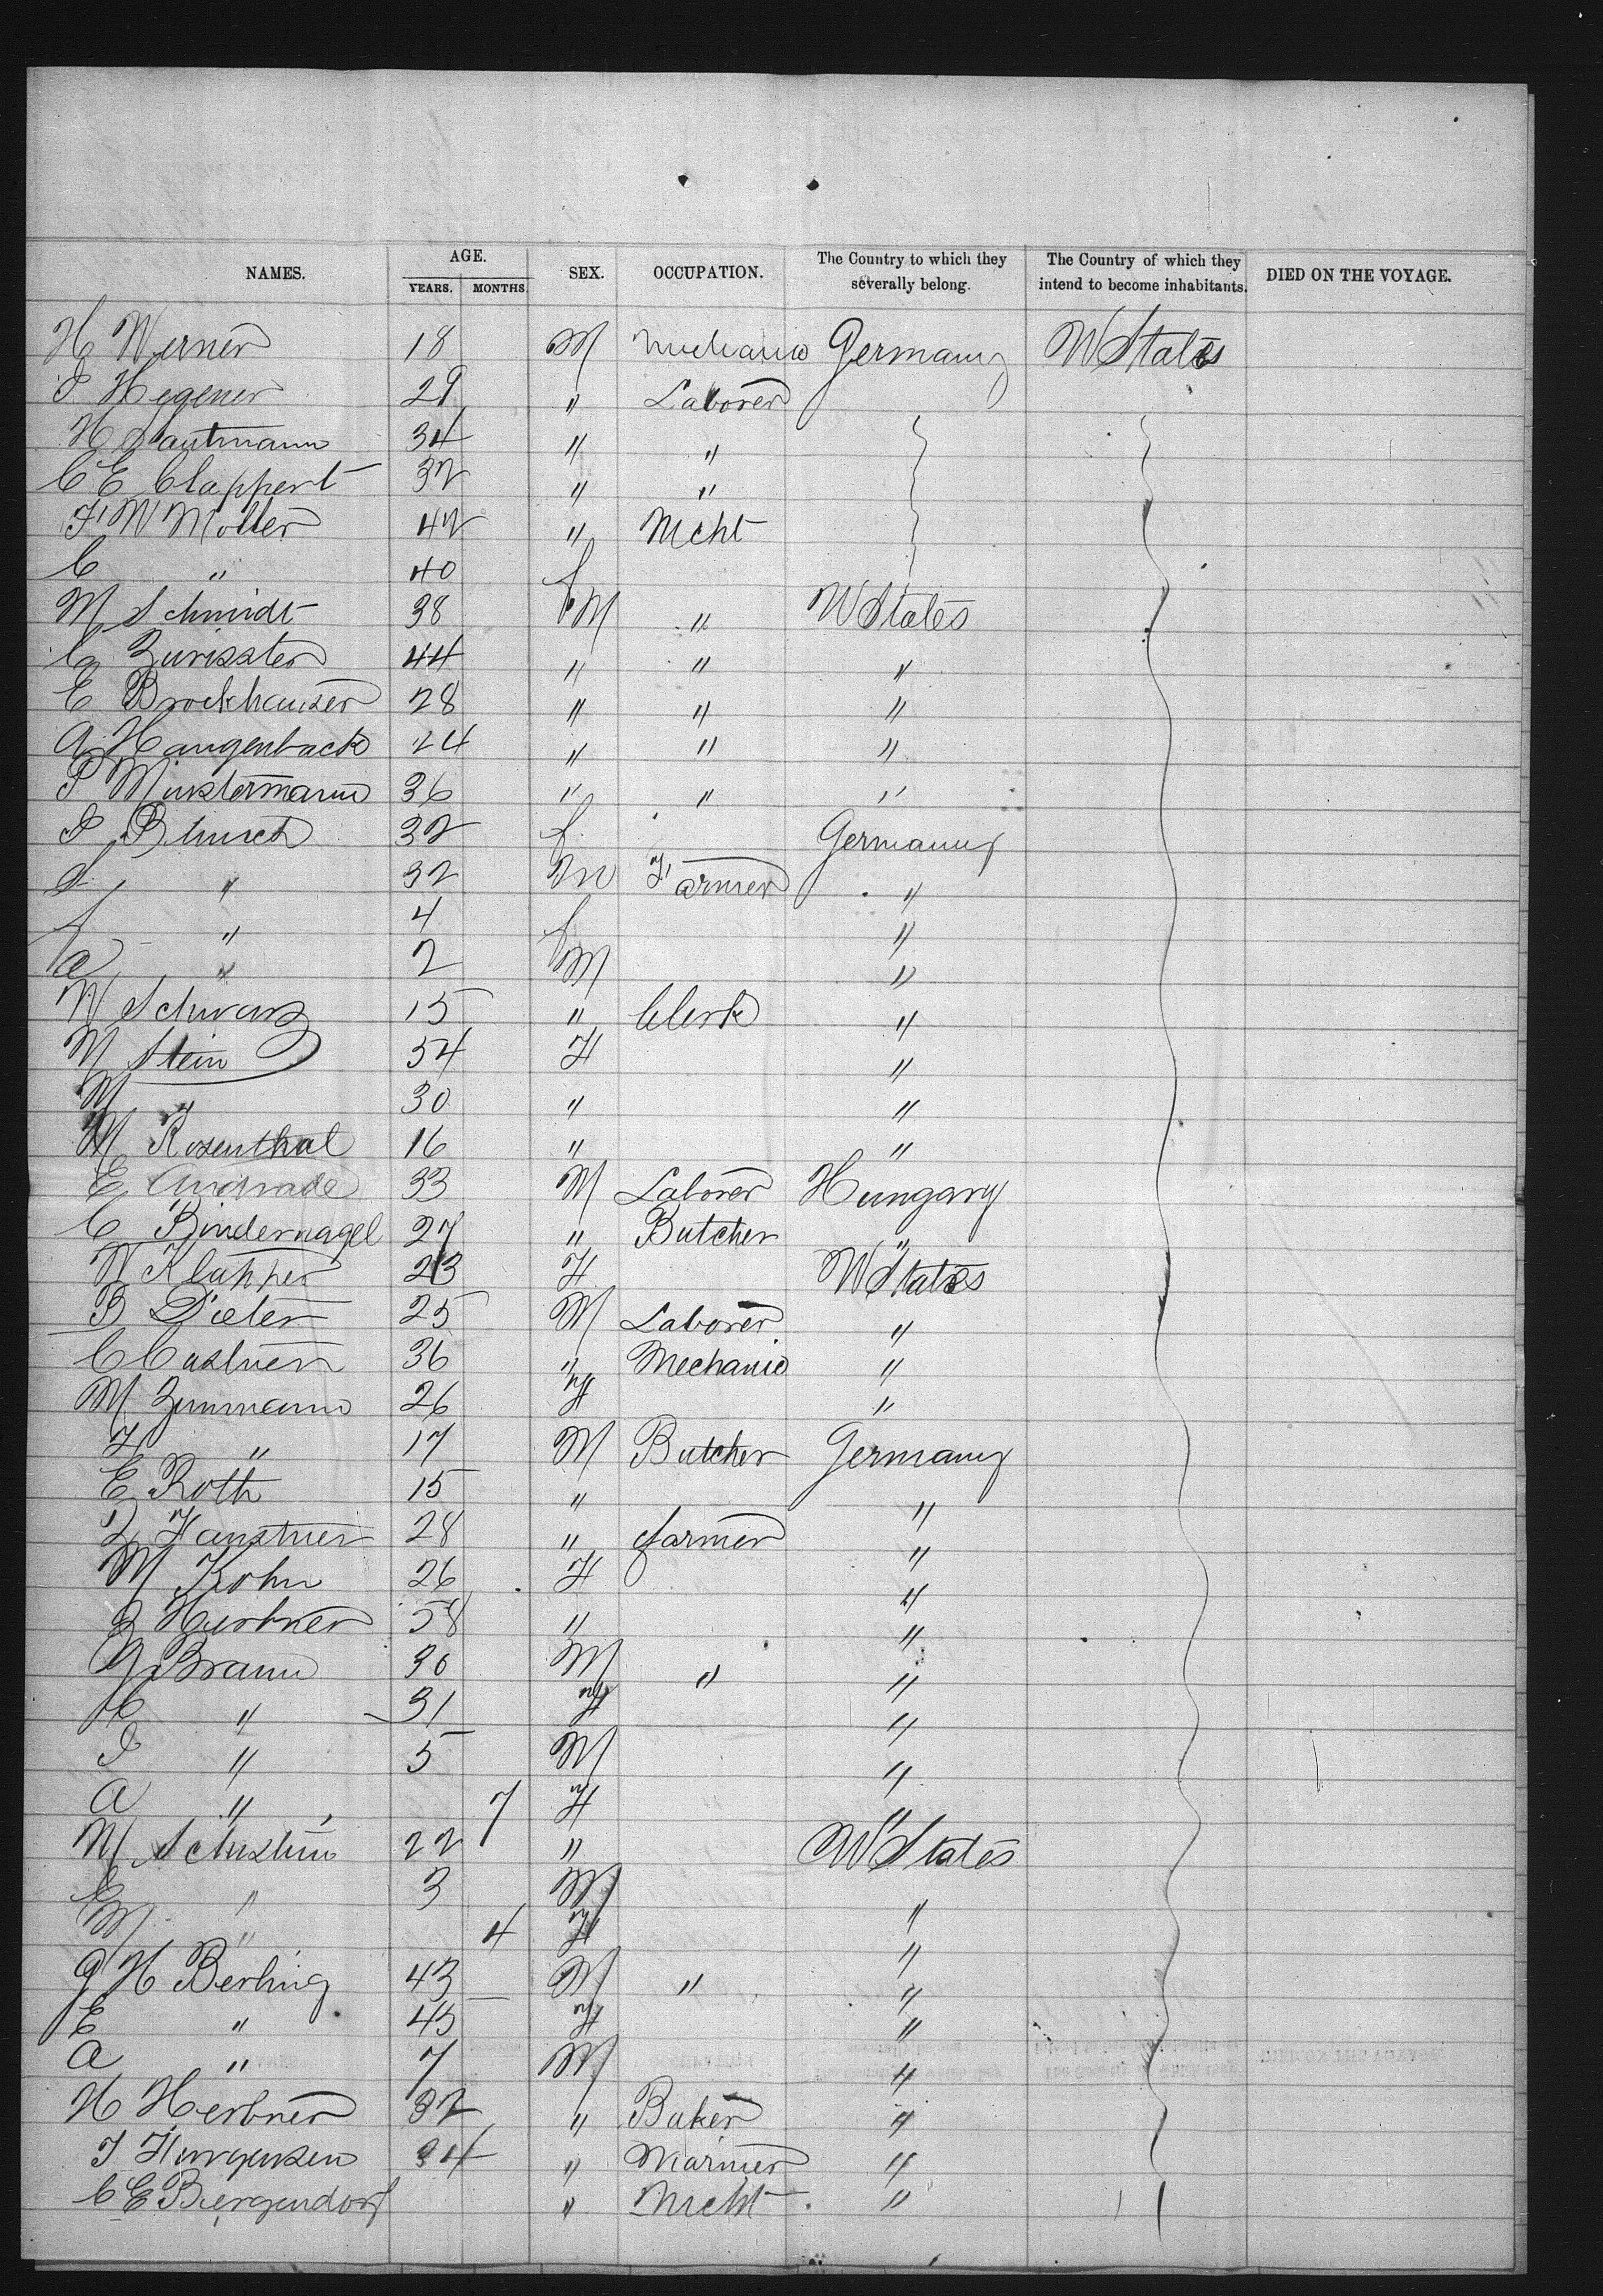 NAMES. AGE. YEARS. MONTHS. SEX. OCCUPATION. The Country to which they severally belong. The Country of which they intend to become inhabitants. DIED ON THE VOYAGE.
H Werner 18 M Mechanic Germany UStates
I Hegener 29 " Laborer
H Hautmann 34 " "
C E Clappert 32 " "
F W Moller 42 " Mcht
C " 40 f
M Schmidt 38 M " UStates
C 44 " " "
E Brockhauser 28 " " "
A Haugenback 24 " " "
P Munstermann 36 " " "
I 32 f Germany
S " 32 M Farmer "
f " 4 f "
A " 2 M "
W Schwarz 15 " Clerk "
M Stein 54 F "
M " 30 " "
M Rosenthal 16 " "
E Andrade 33 M Laborer Hungary
C Bindernagel 27 " Butcher "
W Klapper 23 F UStates
B Dieter 25 M Laborer "
C 36 " Mechanic "
M Zimmann 26 F "
F " 17 M Butcher Germany
E Roth 15 " "
28 " farmer "
M Kohn 26 F "
58 " "
G Braun 30 M " "
C " 31 F "
I " 5 M "
A " 7 F "
M 22 " UStates
E " 3 M "
M " 4 F "
G H Berling 43 M " "
E " 45 F "
A " 7 M "
H Herbner 32 " Baker "
J 34 " Mariner "
C E Bergendorf " Mcht "